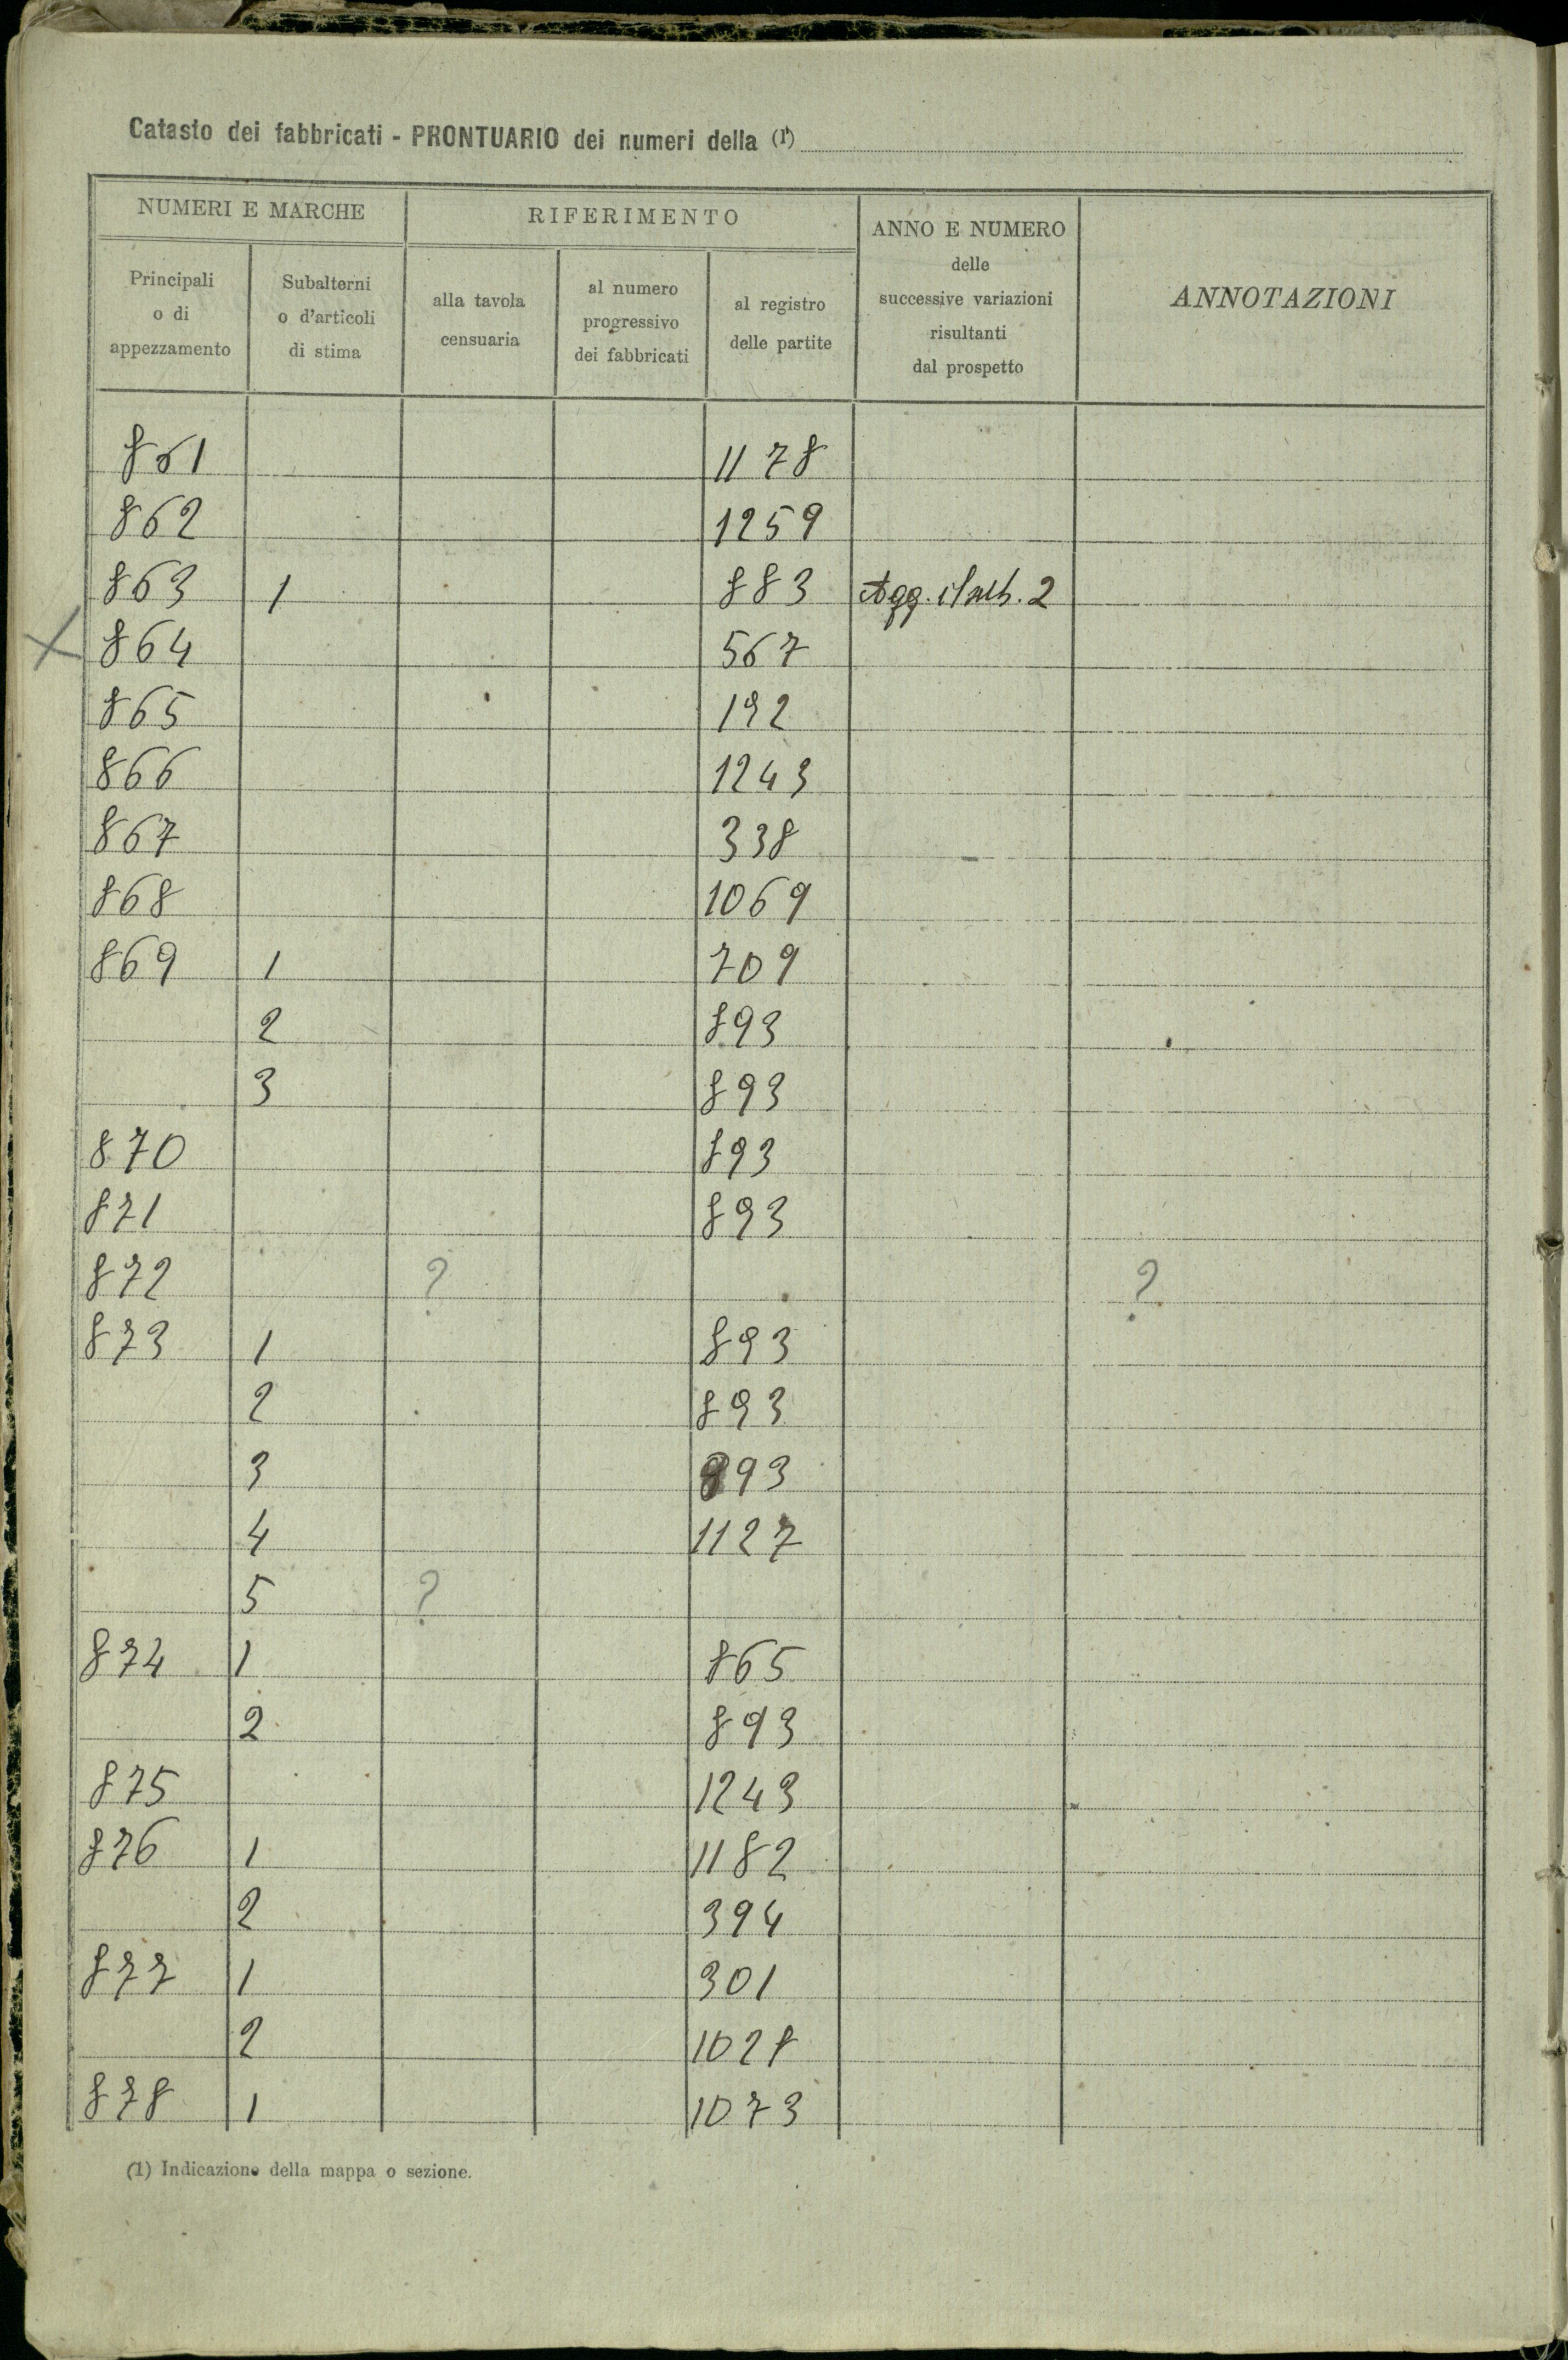 Catasto dei fabbricati - PRONTUARIO dei numeri della (1)
NUMERI E MARCHE
RIFERIMENTO
ANNO E NUMERO
delle
successive variazioni
risultanti
dal prospetto
ANNOTAZIONI
Principali
o di
appezzamento
Subalterni
o d'articoli
di stima
alla tavola
censuaria
al numero
progressivo
dei fabbricati
al registro
delle partite
861 1178
862 1259
863 1 883 Agg. il sub. 2
X 864 567
865 192
866 1243
867 338
868 1069
869 1 709
2 893
3 893
870 893
871 893
872 ? ?
873 1 893
2 893
3 893
4 1127
5 ?
874 1 865
2 893
875 1243
876 1 1182
2 394
877 1 301
2 1028
878 1 1073
(1) Indicazione della mappa o sezione.